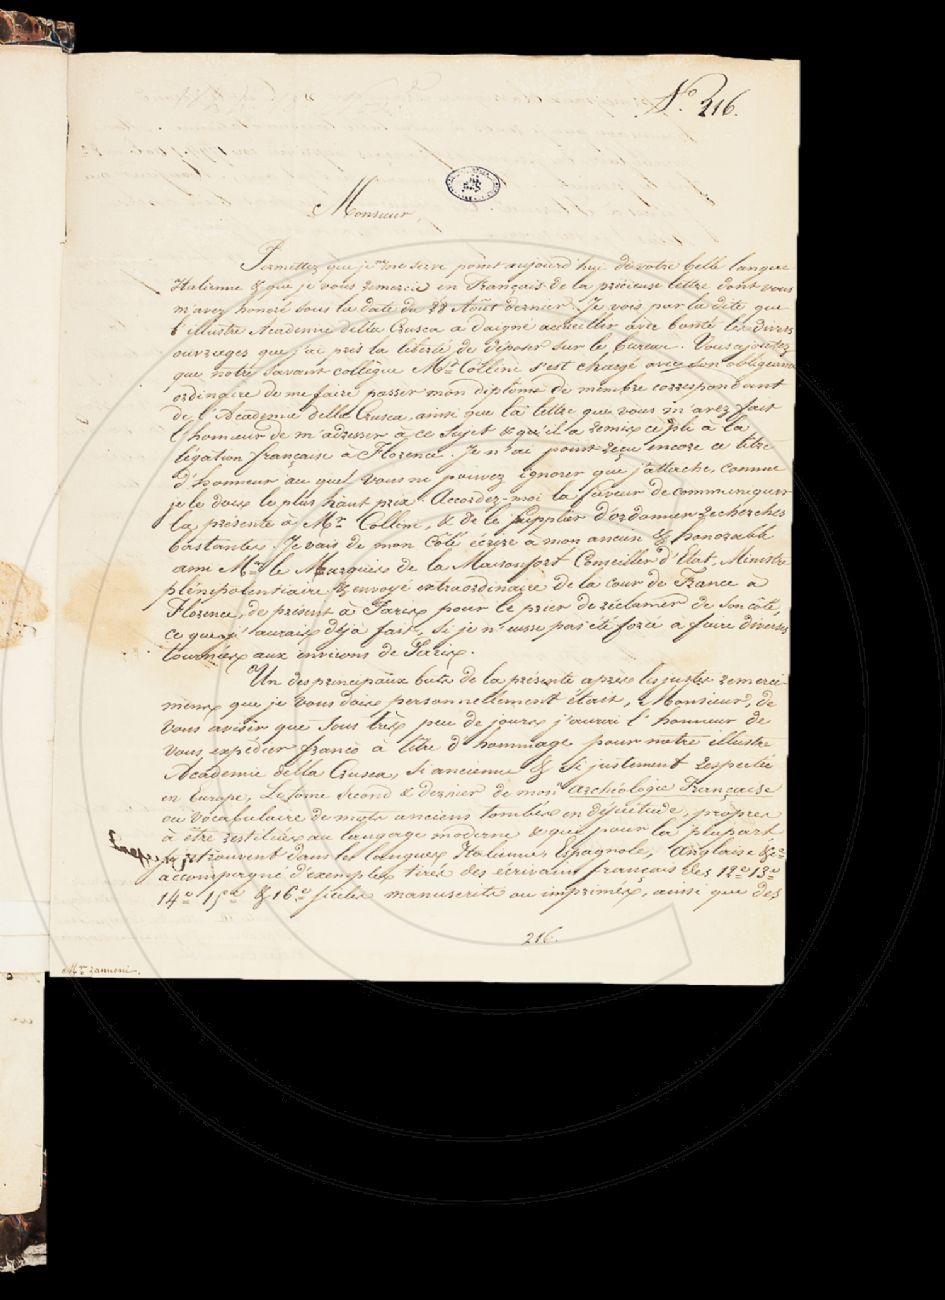 N.º 216.
Monsieur,
Permettez que je ne me serve point aujourd'hui de votre belle langue
Italienne & que je vous remercie en Français de la précieuse lettre dont vous
m'avez honoré sous la date du 28 Août dernier. Je vois par la dite que
l'illustre Académie della Crusca a daigné accueillir avec bonté les divers
ouvrages que j'ai pris la liberté de déposer sur le bureau. Vous ajoutez
que notre savant collègue Mr. Collini s'est chargé avec son obligeance
ordinaire de me faire passer mon diplôme de membre correspondant
de l'Academie della Crusca, ainsi que la lettre que vous m'avez fait
l'honneur de m'adresser à ce sujet & qu'il a remis ce pli à la
légation française à Florence. Je n'ai point reçu encore ce titre
d'honneur au quel vous ne pouvez ignorer que j'attache, comme
je le dois le plus haut prix. Accordez-moi la faveur de communiquer
la présente à Mr. Collini, & de le supplier d'ordonner recherches
bastantes. Je vais de mon côté écrire à mon ancien & honorable
ami Mr. le Marquis de la Maisonfort Conseiller d'Etat, Ministre
plénipotentiaire & envoyé extraordinaire de la cour de France a
Florence, de présent à Paris pour le prier de réclamer de son côté,
ce que j'aurais déjà fait, si je n'eusse pas été forcé a faire diverses
tournées aux environs de Paris.
Un des principaux buts de la présente après les justes remercî-
mens que je vous dois personnellement était, Monsieur, de
vous aviser que sous très peu de jours j'aurai l'honneur de
vous expédier franco à titre d'hommage pour notre illustre
Académie della Crusca, si ancienne & si justement respectée
en Europe, Le tome second & dernier de mon Archéologie Française
ou vocabulaire de mots anciens tombés en désuétude, propres
à être restitués au langage moderne & que pour la plupart
se trouvent dans les langues Italienne, Espagnole, Anglaise &c.
accompagné d'exemples tirés des écrivains français des 12e 13e
14e 15e & 16e siècles manuscrits ou imprimés, ainsi que des
216.
Mr. Zannoni.